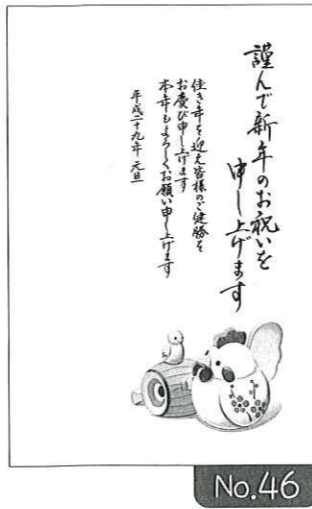 謹んで新年のお祝いを
申し上げます
佳き年を迎え皆様のご健勝を
お慶び申し上げます
本年もよろしくお願い申し上げます
平成二十九年 元旦
No.46